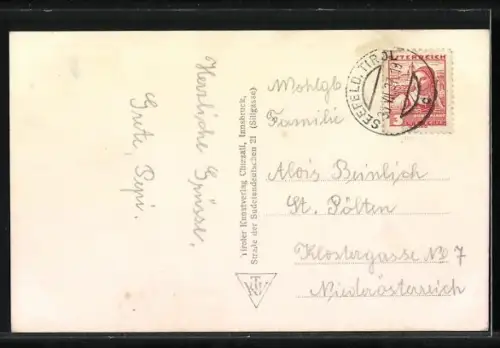 Herzliche Grüsse,
Grete, Pepi.
Tiroler Kunstverlag Chizzali, Innsbruck,
Straße der Sudetendeutschen 21 (Sillgasse)
TKV
SEEFELD, TIROL
ÖSTERREICH
Wohlgb
Familie
Alois Beinlich
St. Pölten
Klostergasse No 7
Niederösterreich